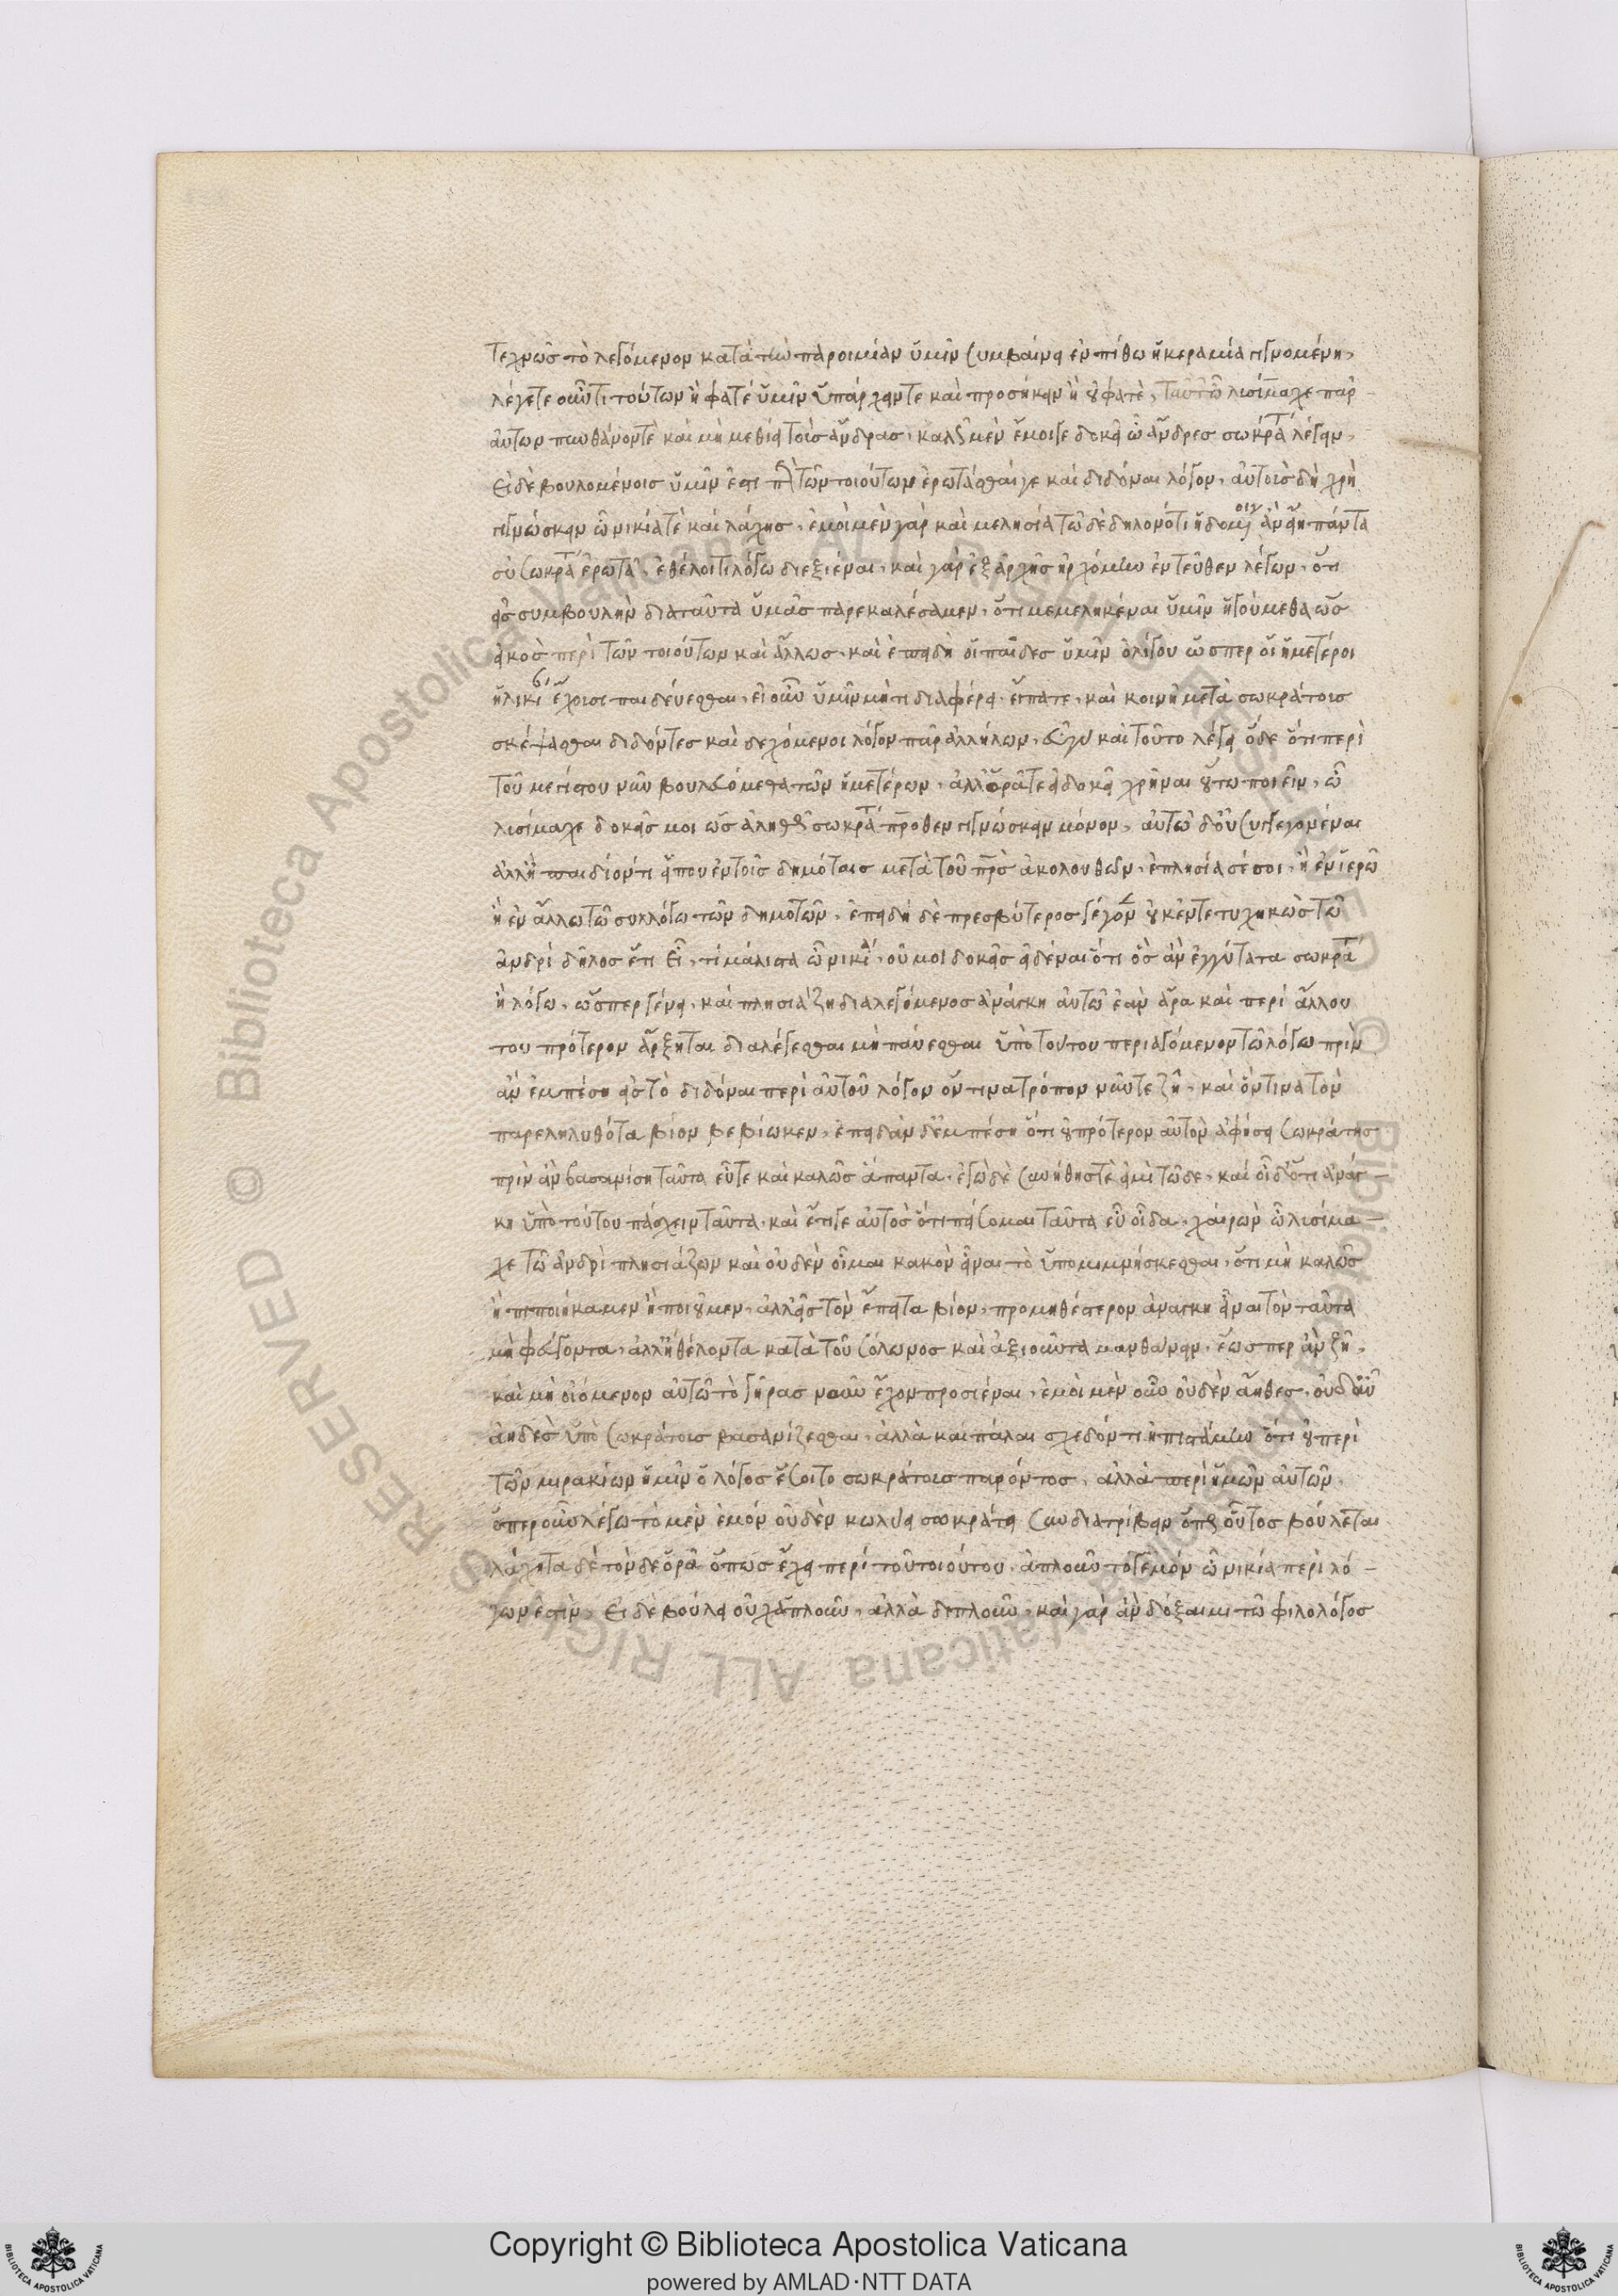 τεχνῶς τὸ λεγόμενον κατὰ τὴν παροιμίαν ὑμῖν συμβαίνει ἐν πίθω ἡ κεραμία γιγνομένη,
λέγετε οὖν τί τούτων ἢ φατέ ὑμῖν ὑπάρχειν τε καὶ προσήκειν ἢ οὔ φατέ, ταῦτ ὦ λυσίμαχε παρ
αὐτῶν πυνθάνου τὲ καὶ μὴ μεθίει τοὺς ἄνδρας, καλῶς μὲν ἔμοιγε δοκεῖ ὦ ἄνδρες σωκράτ λέγειν,
εἰ δὲ βουλομένοις ὑμῖν ἐστι περὶ τῶν τοιούτων ἐρωτᾶσθαί γε καὶ διδόναι λόγον, αὐτοὺς δὴ χρὴ
γιγνώσκειν ὦ νικία τὲ καὶ λάχης, ἐμοὶ μὲν γὰρ καὶ μελησία τῶδε δηλονότι ἡδομένοις ἂν εἴη πάντα
σὺ σωκράτ ἐρωτᾶ, ἐθέλοιτε λόγω διεξιέναι, καὶ γὰρ ἐξ ἀρχῆς ἠρχόμην ἐντεῦθεν λέγων, ὅτι
εἰς συμβουλὴν διὰ ταῦτα ὑμᾶς παρεκαλέσαμεν, ὅτι μεμεληκέναι ὑμῖν ἡγούμεθα ὡς
εἰκὸς περὶ τῶν τοιούτων καὶ ἄλλως, καὶ ἐπειδὴ οἱ παῖδες ὑμῖν ὀλίγου ὥσπερ οἱ ἡμετέροι
ἡλικί ἔχουσι παιδεύεσθαι, εἰ οὖν ὑμῖν μή τι διαφέρει, εἴπατε, καὶ κοινῆ μετὰ σωκράτους
σκέψασθαι διδόντες καὶ δεχόμενοι λόγον παρ ἀλλήλων, εὖ γὰρ καὶ τοῦτο λέγει ὅδε ὅτι περὶ
τοῦ μεγίστου νῦν βουλευόμεθα τῶν ἡμετέρων, ἀλλ ὁρᾶτε εἰ δοκεῖ χρῆναι οὕτω ποιεῖν, ὦ
λυσίμαχε δοκεῖς μοι ὡς ἀληθῶς σωκράτ πρόθεν γιγνώσκειν μόνον, αὐτῶ δ οὐ συγγεγονέναι
ἀλλ ἢ παιδὶ ὄντι εἴ που ἐν τοῖς δημόταις μετὰ τοῦ πρς ἀκολουθῶν, ἐπλησίασέ σοι, ἢ ἐν ἱερῶ
ἢ ἐν ἄλλω τῶ συλλόγω τῶν δημοτῶν, ἐπειδὴ δὲ πρεσβύτερος γέγον οὐκ ἐντετυχηκὼς τῶ
ἀνδρὶ δῆλος ἔτι εἶ, τί μάλιστα ὦ νικία, οὔ μοι δοκεῖς εἰδέναι ὅτι ὃς ἂν ἐγγύτατα σωκρά
ἢ λόγω, ὥσπερ γένει, καὶ πλησιάζη διαλεγόμενος ἀνάγκη αὐτῶ ἐὰν ἄρα καὶ περὶ ἄλλου
του πρότερον ἄρξηται διαλέγεσθαι μὴ παύεσθαι ὑπὸ τούτου περιαγόμενον τῶ λόγω πρὶν
ἂν ἐμπέση εἰς τὸ διδόναι περὶ αὑτοῦ λόγον ὅντινα τρόπον νῦν τε ζῆ, καὶ ὅντινα τὸν
παρεληλυθότα βίον βεβίωκεν, ἐπειδὰν δ ἐμπέση ὅτι οὐ πρότερον αὐτὸν ἀφήσει σωκράτης
πρὶν ἂν βασανίση ταῦτα εὖ τε καὶ καλῶς ἅπαντα, ἐγὼ δὲ συνήθης τέ εἰμι τῶδε, καὶ οἶδ ὅτι ἀνάγ–
κη ὑπὸ τούτου πάσχειν ταῦτα, καὶ ἔτι γε αὐτὸς ὅτι πείσομαι ταῦτα εὖ οἶδα, χαίρω ὦ λυσίμα–
χε τῶ ἀνδρὶ πλησιάζων καὶ οὐδὲν οἶμαι κακὸν εἶναι τὸ ὑπομιμνήσκεσθαι, ὅτι μὴ καλῶς
ἢ πεποιήκαμεν ἢ ποιοῦμεν, ἀλλ εἰς τὸν ἔπειτα βίον, προμηθέστερον ἀνάγκη εἶναι τὸν ταῦτα
μὴ φεύγοντα, ἀλλ ἠθέλοντα κατὰ τοῦ σόλωνος καὶ ἀξιοῦντα μανθάνειν, ἕως περ ἂν ζῆ,
καὶ μὴ οἰόμενον αὐτῶ τὸ γῆρας νοῦν ἔχον προσιέναι, ἐμοὶ μὲν οὖν οὐδὲν ἄηθες, οὐδ αὖ
ἀηδὲς ὑπὸ σωκράτους βασανίζεσθαι, ἀλλὰ καὶ πάλαι σχεδόν τι ἠπιστάμην ὅτι οὐ περὶ
τῶν μιρακίων ἡμῖν ὁ λόγος ἔσοιτο σωκράτους παρόντος, ἀλλὰ περὶ ἡμῶν αὐτῶν,
ὅπερ οὖν λέγω τὸ μὲν ἐμόν οὐδὲν κωλύει σωκράτει συνδιατρίβειν ὅπως οὗτος βούλεται
λάχητα δὲ τόνδε ὅρα ὅπως ἔχει περὶ τοῦ τοιούτου, ἁπλοῦν τό γ ἐμόν ὦ νικία περὶ λό–
γων ἐστὶν, εἰ δὲ βούλει οὐχ ἁπλοῦν, ἀλλὰ διπλοῦν, καὶ γὰρ ἂν δόξαιμι τῶ φιλολόγος